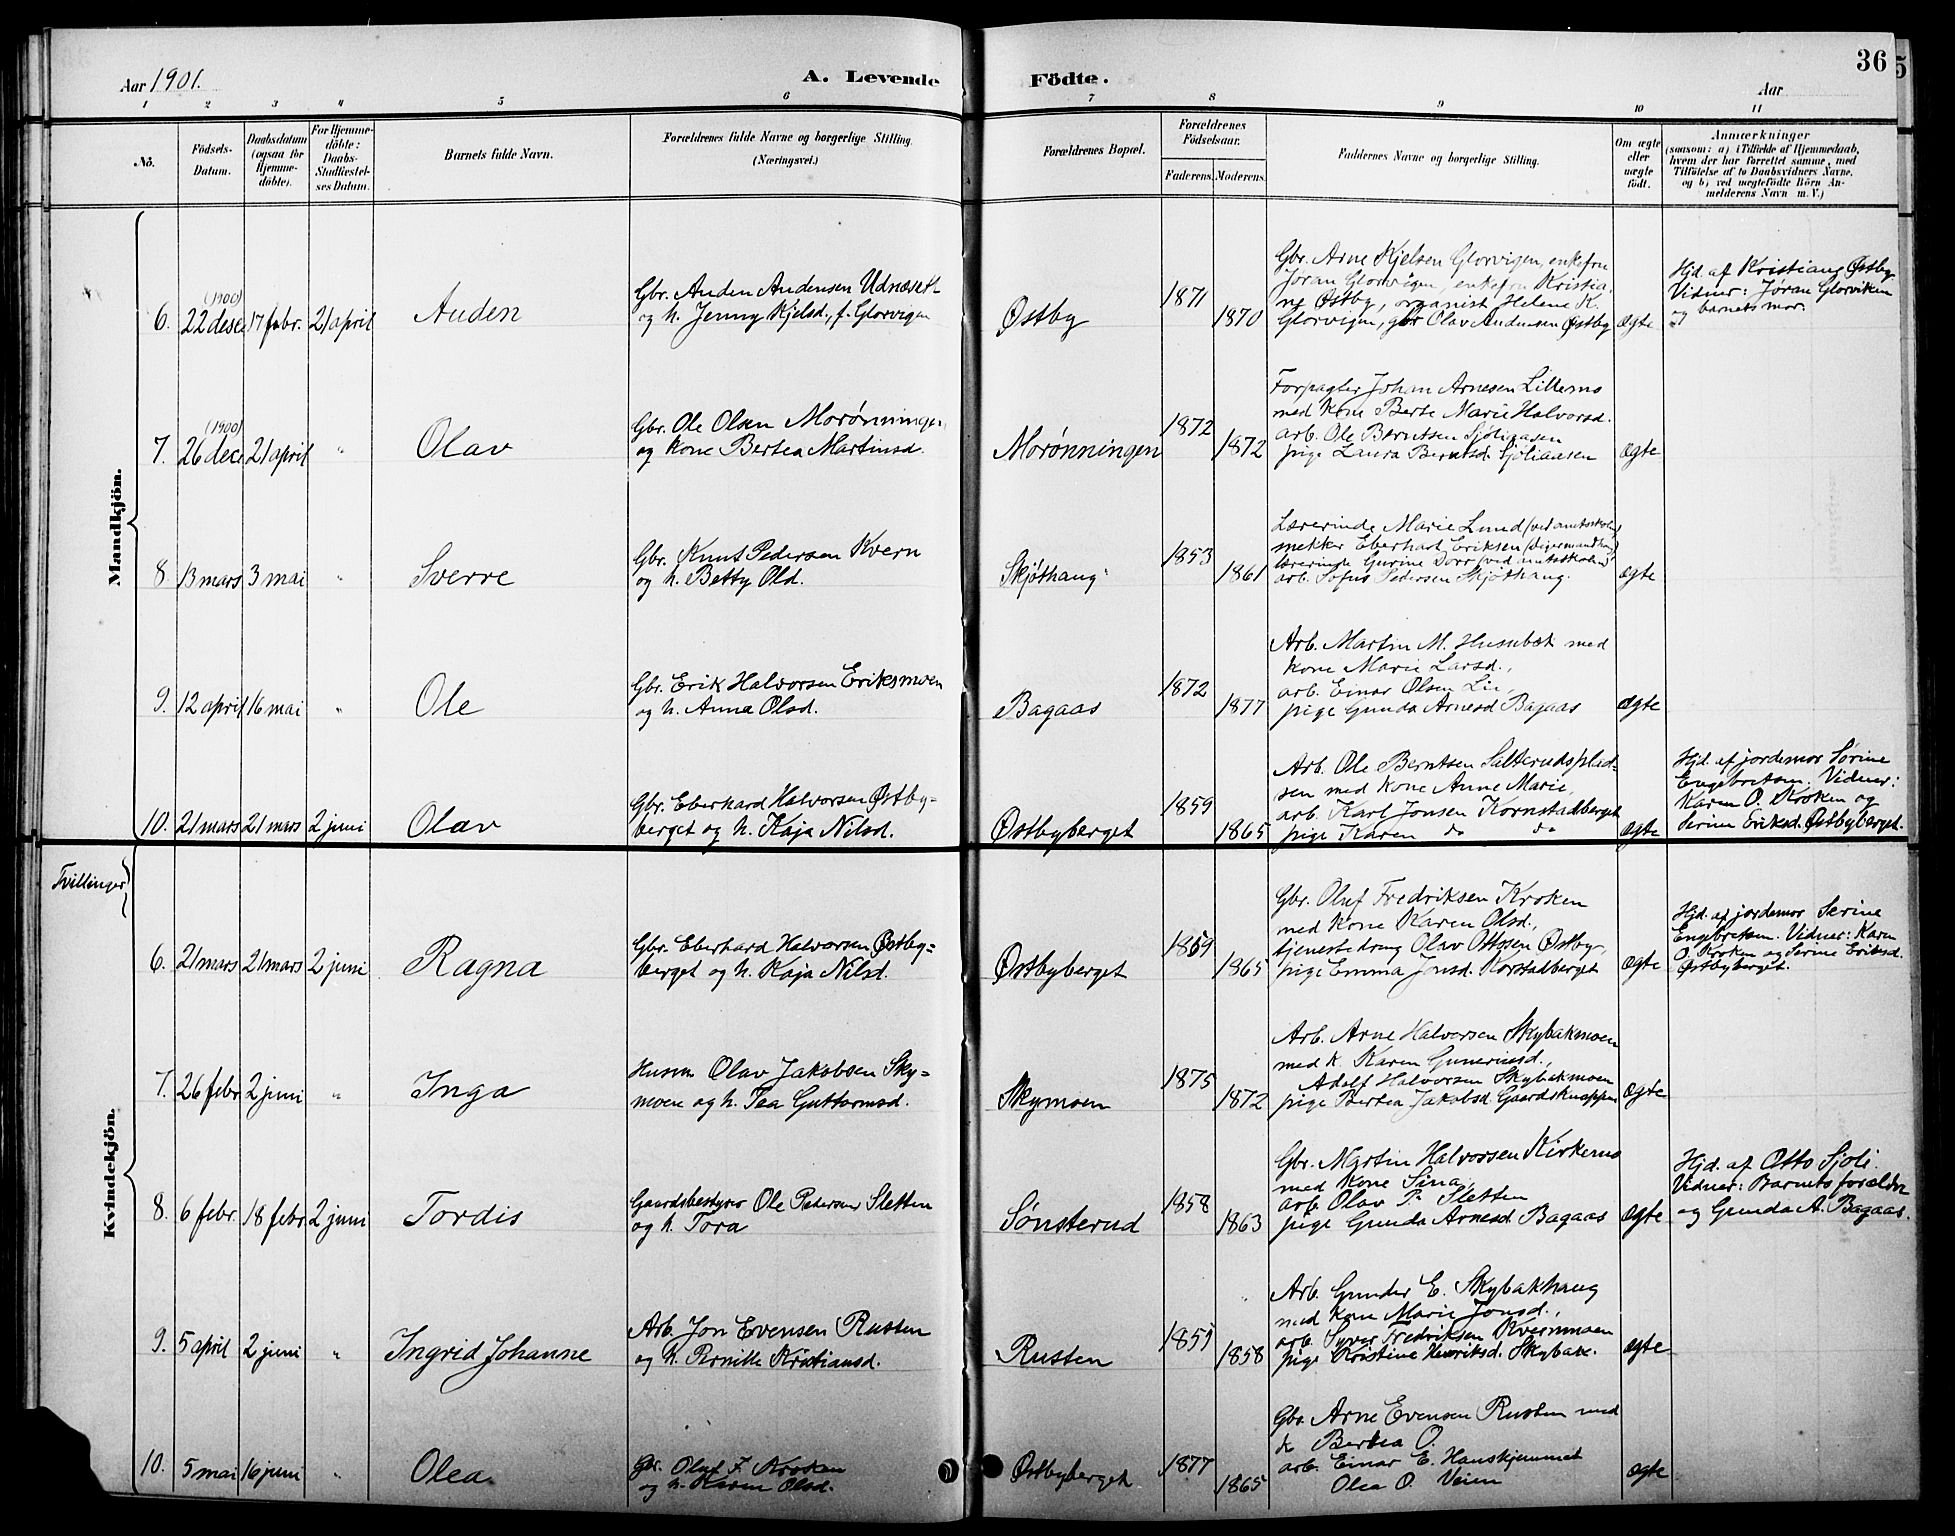 36
Aar 1901.
A. Levende Födte.
Aar
1 2 3 4 5 6 7 8 9 10 11
No.
Födsels-
Datum.
Daabsdatum
(ogsaa for
Hjemme-
döbte).
For Hjemme-
döbte:
Daabs-
Stadfæstel-
ses Datum.
Barnets fulde Navn.
Forældrenes fulde Navne og borgerlige Stilling.
(Næringsvei.)
Forældrenes Bopæl.
Forældrenes
Födselsaar.
Faderens. Moderens.
Faddernes Navne og borgerlige Stilling.
Om ægte
eller
uægte
født.
Anmærkninger
(saasom: a) i Tilfælde af Hjemmedaab,
hvem der har forrettet samme, med
Tilføielse af to Daabsvidners Navne,
og b) ved uægtefödte Börn An-
melderens Navn m. V.)
Mandkjön.
6.
(1900)
22 dese
17 febr.
21 april
Auden
Gbr. Auden Audensen Udnæset
og h. Jenny Kjelsd., f. Glorvigen
Østby
1871
1870
Gbr. Arne Kjelsen Glorvigen, enkefru
Jøran Glorvigen, enkefru Kristia-
ne Østby, organist Helene K.
Glorvigen, gbr Olav Audensen Østby
ægte
Hjd. af Kristiane Østby
Vidner: Jøran Glorviken
og barnets mor.
7.
(1900)
26 dece
21 april
"
Olav
Gbr. Ole Olsen Morønningen
og kone Bertea Martinsd.
Morønningen
1872
1872
Forpagter Johan Arnesen Lillemo
med kone Berte Marie Halvorsd.
arb. Ole Berntsen Sjøliaasen
pige Laura Berntsd. Sjøliaasen
ægte
8
13 mars
3 mai
"
Sverre
Gbr. Knut Pedersen Kvern
og h. Betty Old.
Skjøthaug
1853
1861
Lærerinde Marie Lund (ved amtsskolen)
snekker Eberhart Eriksen
lærerinde Gurine Dorr (ved amtsskolen)
arb. Sofus Pedersen Skjøthaug.
ægte
9.
12 april
16 mai
"
Ole
Gbr. Erik Halvorsen Eriksmoen
og h. Anna Olsd.
Bagaas
1872
1877
Arb. Martin M. Husubæk med
kone Marie Larsd.,
arb. Einar Olsen Lie,
pige Gunda Arnesd Bagaas
ægte
10.
21 mars
21 mars
2 juni
Olav
Gbr. Eberhard Halvorsen Østby-
berget og h. Kaja Nilsd.
Østbyberget
1859
1865
Arb. Ole Berntsen Sætterudsplad-
sen med kone Anne Marie,
arb. Karl Jonsen Kornstadberget
pige Karen do do
ægte
Hjd. af jordemor Sørine
Engebretsen. Vidner:
Karen O. Kroken og
Serine Eriksd. Østbyberget.
Tvillinger
Kvindekjön.
6.
21 mars
21 mars
2 juni
Ragna
Gbr. Eberhard Halvorsen Østby-
berget og h. Kaja Nilsd.
Østbyberget
1859
1865
Gbr. Oluf Fredriksen Kroken
med kone Karen Olsd.,
tjenestedreng Olav Ottosen Østby,
pige Emma Jonsd. Korstadberget
ægte
Hjd. af jordemor Serine
Engebretsen. Vidner: Karen
O. Kroken og Serine Eriksd.
Østbyberget.
7.
26 febr
2 juni
"
Inga
Husm Olav Jakobsen Sky-
moen og h. Tea Guttormsd.
Skymoen
1875
1872
Arb. Arne Halvorsen Skybakmoen
med k. Karen Guneriusd.,
Adolf Halvorsen Skybakmoen
pige Bertea Jakobsd. Gaardsknappen
ægte
8.
6 febr.
18 febr.
2 juni
Tordis
Gaardsbestyrer Ole Pedersen Sletten
og h. Tora
Sønsterud
1858
1863
Gbr. Martin Halvorsen Kirkemo
med kone Sina,
arb. Olav P. Sletten
pige Gunda Arnesd Bagaas
ægte
Hjd. af Otto Sjøli.
Vidner: Barnets forældre
og Gunda A. Bagaas.
9.
5 april
2 juni
"
Ingrid Johanne
Arb. Jon Evensen Rusten
og h. Pernille Kristiansd.
Rusten
1855
1858
Arb. Gunder E. Skybakhaug
med kone Marie Jonsd.,
arb. Syver Fredriksen Kvernmoen
pige Kristine Henriksd. Skybak.
ægte
10.
5 mai
16 juni
"
Olea
Gbr. Oluf F. Kroken
og h. Karen Olsd.
Østbyberget
1877
1865
Gbr Arne Evensen Rusten med
k Bertea O.
arb. Einar E. Hanskjemmet
Olea O. Veien
ægte